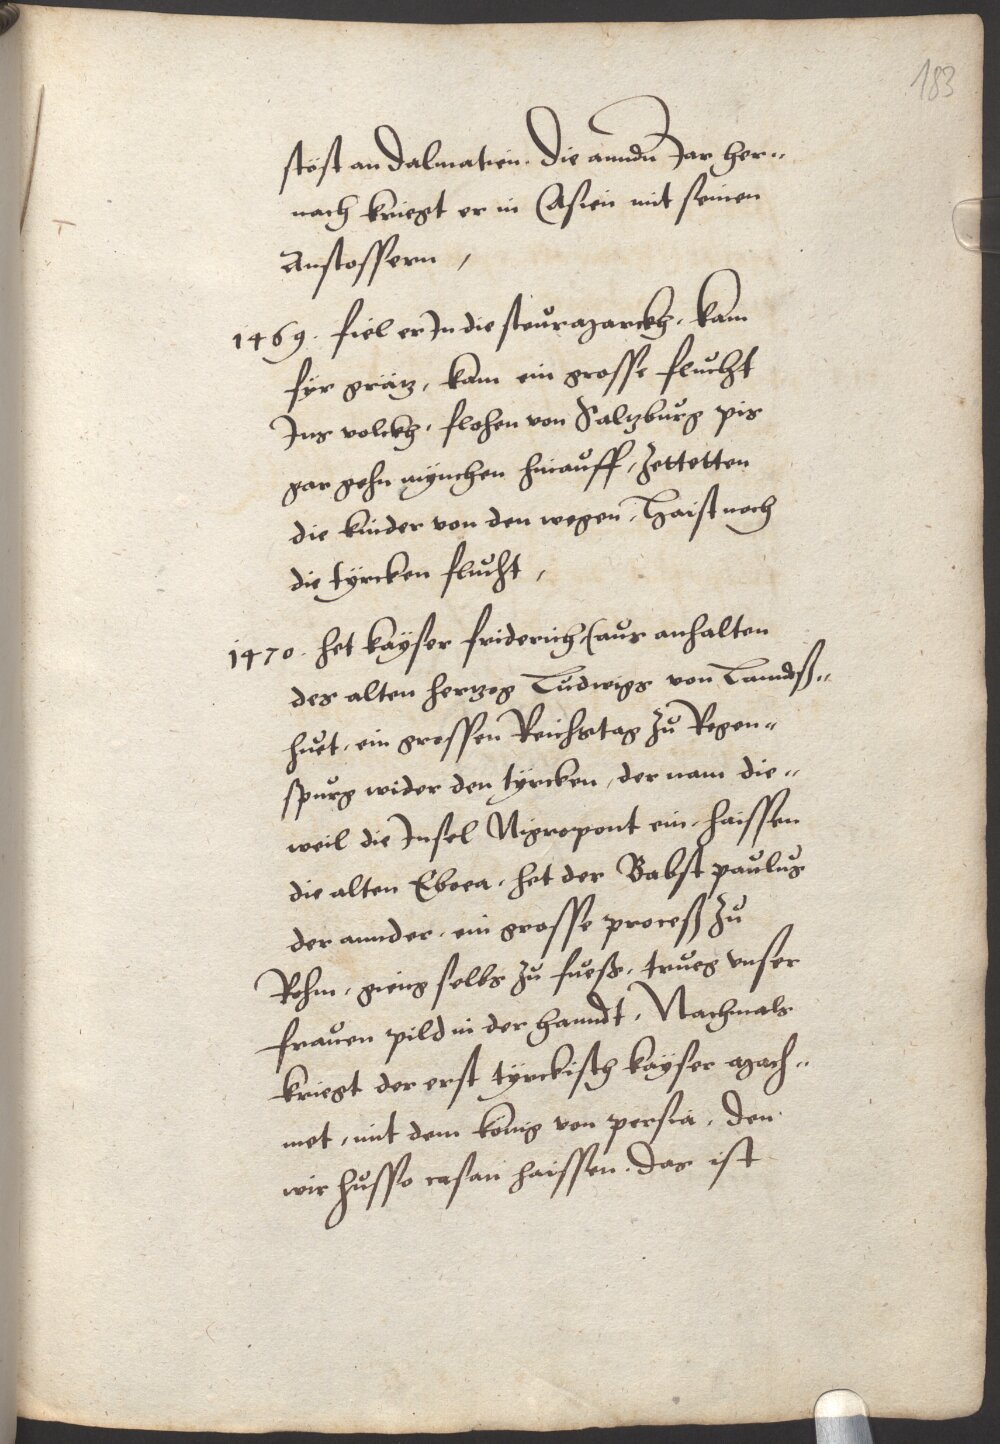 183
stöst an Dalmatien. Die anndn Jar her¬
nach kriegt er in Asien mit seinen
Anstossern,
1469. fiel er In die steurmarckh, kam
fyr grätz, kam ein grosse flucht
Ins volckh, flohen von Saltzburg pis
gar gehn mynchen hinauff, zettetten
die kinder von den wegen, Haist noch
die tyrcken flucht,
1470. het kayser friderich (aus anhalten
des alten hertzog Ludwigs von Lanndß¬
huet, ein grossen Reichstag zu Regen¬
spurg wider den tyrcken, der nam die¬
weil die Insel Nigropont ein, haissen
die alten Eboea, het der Babst paulus
der annder, ein grosse proceß zu
Rohm, gieng selbs zu fuess, trueg vnser
frauen pild in der hanndt, Nachmals
kriegt der erst tyrckisch kayser mach¬
met, mit dem könig von persia, den
wir husso casan haissen. das ist